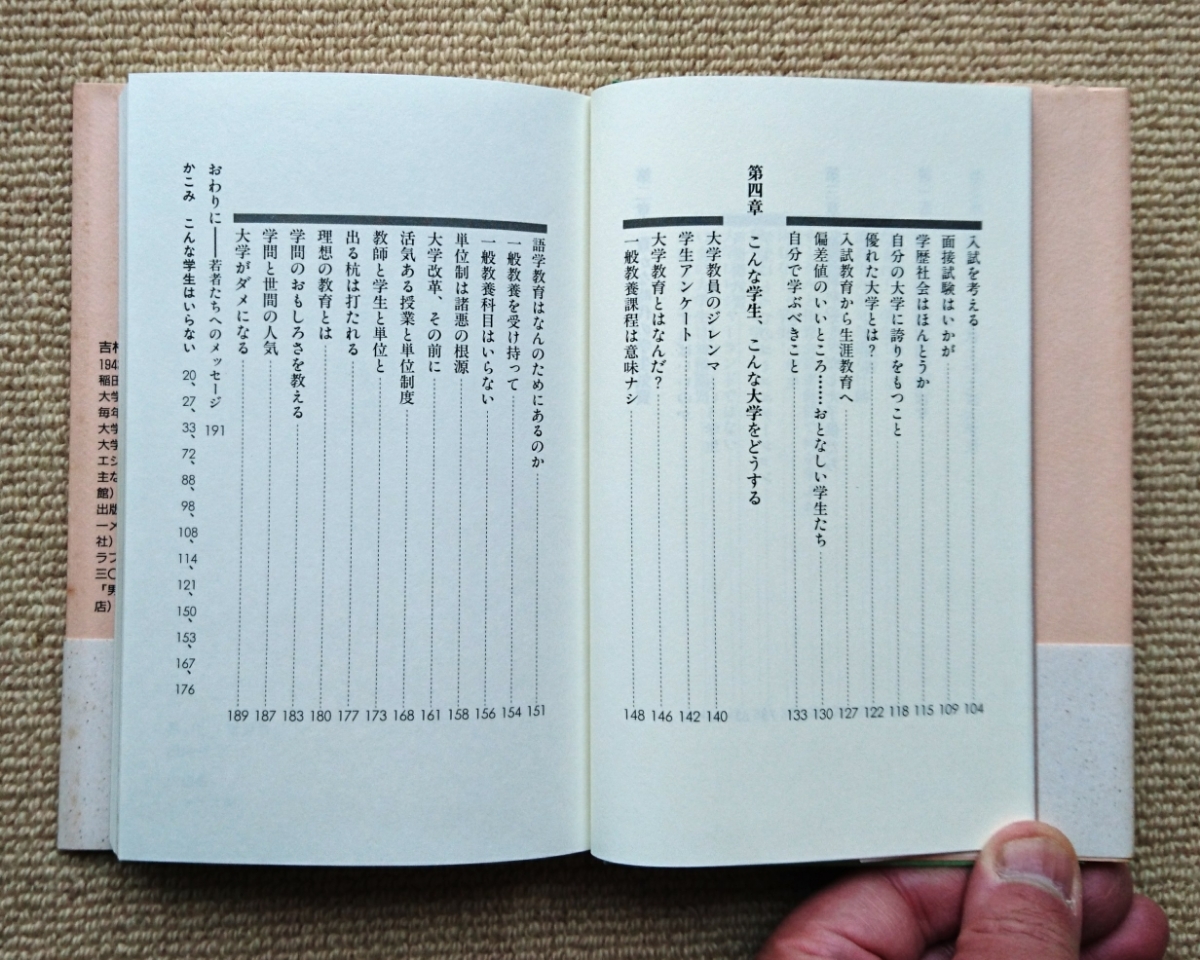 入試を考える 104
面接試験はいかが 109
学歴社会はほんとうか 115
自分の大学に誇りをもつこと 118
優れた大学とは? 122
入試教育から生涯教育へ 127
偏差値のいいところ……おとなしい学生たち 130
自分で学ぶべきこと 133
第四章 こんな学生、こんな大学をどうする
大学教員のジレンマ 140
学生アンケート 142
大学教育とはなんだ? 146
一般教養課程は意味ナシ 148
語学教育はなんのためにあるのか 151
一般教養を受け持って 154
一般教養科目はいらない 156
単位制は諸悪の根源 158
大学改革、その前に 161
活気ある授業と単位制度 168
教師と学生と単位と 173
出る杭は打たれる 177
理想の教育とは 180
学問のおもしろさを教える 183
学問と世間の人気 187
大学がダメになる 189
おわりに――若者たちへのメッセージ 191
かこみ こんな学生はいらない 20、27、33、72、88、98、108、114、121、150、153、167、176
吉
194
稲田
大学
毎年
大学
大学
エジ
主な
館)
出版
一メ
社)
ラフ
三〇
「男
店)